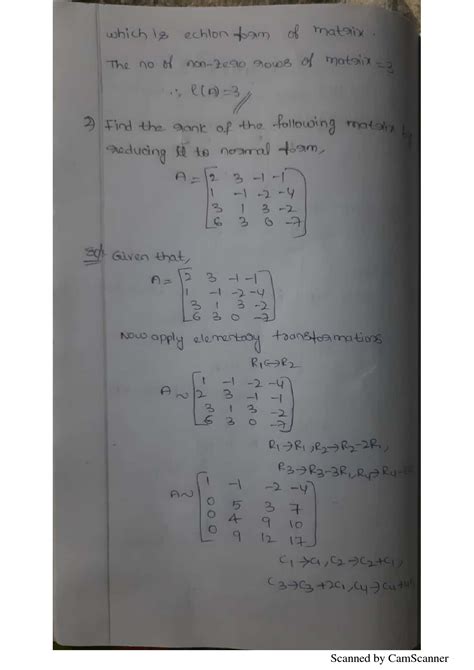 which is echlon form of matrix.
The no of non-zero rows of matrix = 3
∴ ρ(A) = 3 //
2) Find the rank of the following matrix by
reducing it to normal form,
A = [2 3 -1 -1
1 -1 -2 -4
3 1 3 -2
6 3 0 -7]
Sol: Given that,
A = [2 3 -1 -1
1 -1 -2 -4
3 1 3 -2
6 3 0 -7]
Now apply elementary transformations
R₁↔R₂
A ~ [1 -1 -2 -4
2 3 -1 -1
3 1 3 -2
6 3 0 -7]
R₁→R₁, R₂→R₂-2R₁,
R₃→R₃-3R₁, R₄→R₄-
A ~ [1 -1 -2 -4
0 5 3 7
0 4 9 10
0 9 12 17]
C₁→C₁, C₂→C₂+C₁,
C₃→C₃+2C₁, C₄→C₄+
Scanned by CamScanner